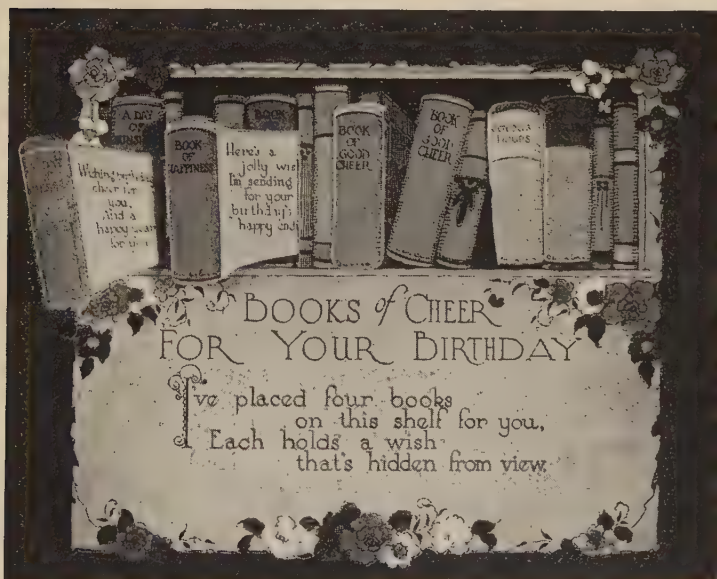 A DAY
OF
BOOK
OF
HAPPINESS
BOOK
Wishing
cheer for
you,
And a
happy year
for you
Here's a
jolly wish
I'm sending
for your
birthday's
happy end
BOOK
OF
GOOD
CHEER
BOOK
OF
GOOD
CHEER
HOURS
BOOKS of CHEER
FOR YOUR BIRTHDAY
I've placed four books
on this shelf for you,
Each holds a wish
that's hidden from view.